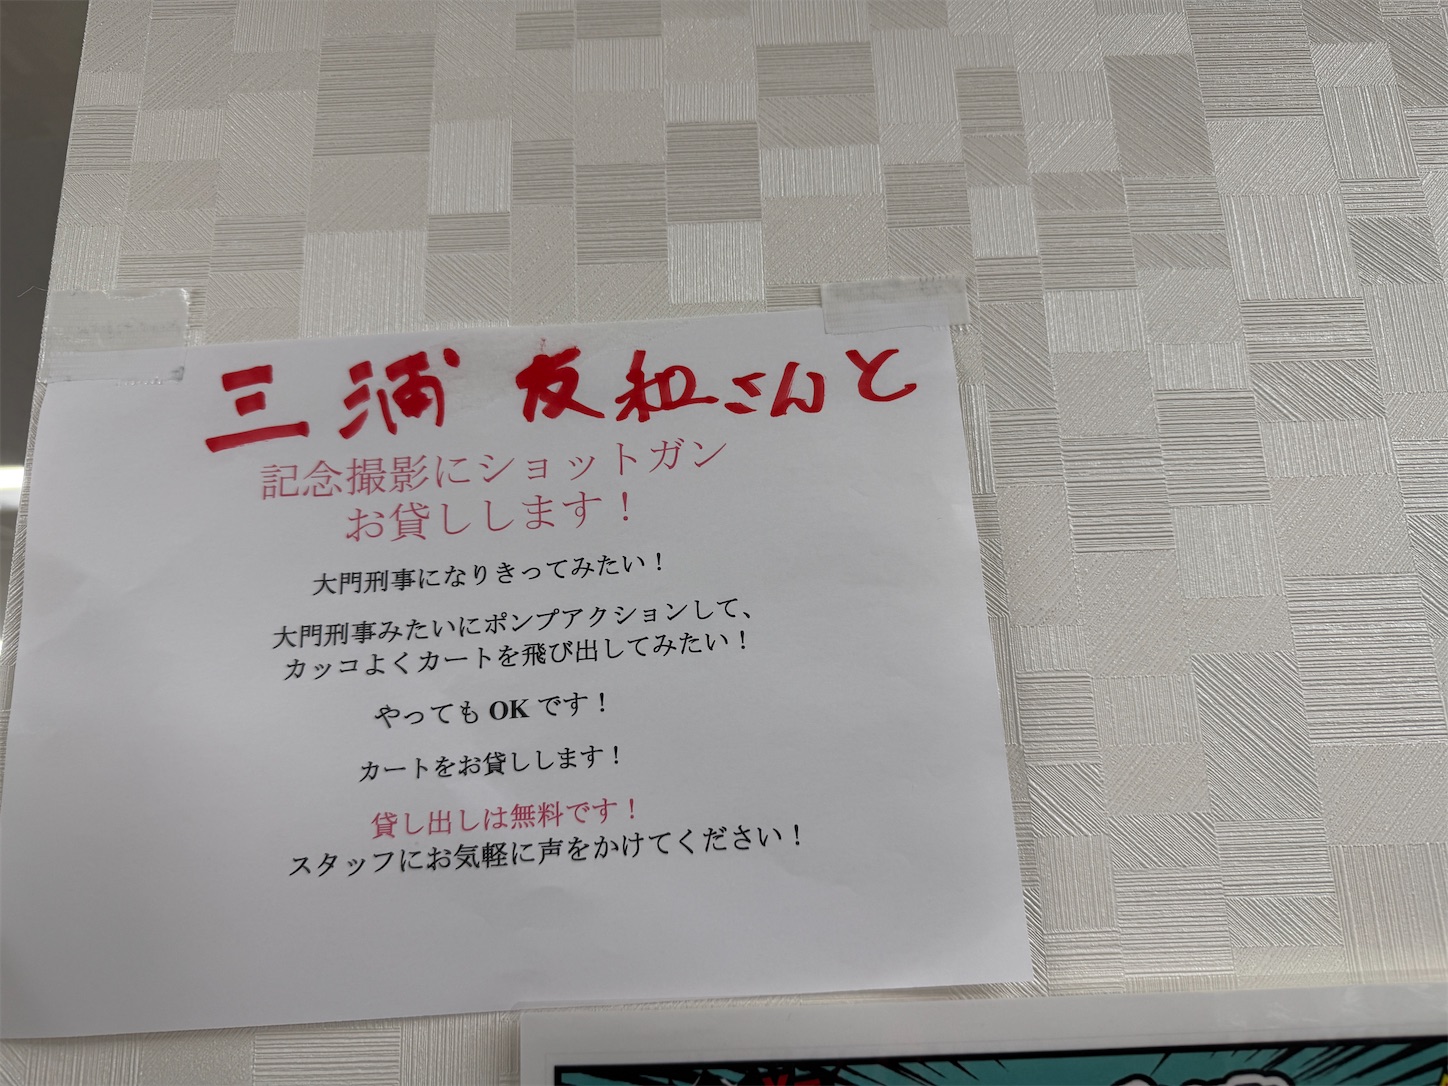 三浦友和さんと
記念撮影にショットガン
お貸しします！
大門刑事になりきってみたい！
大門刑事みたいにポンプアクションして、
カッコよくカートを飛び出してみたい！
やってもOKです！
カートをお貸しします！
貸し出しは無料です！
スタッフにお気軽に声をかけてください！